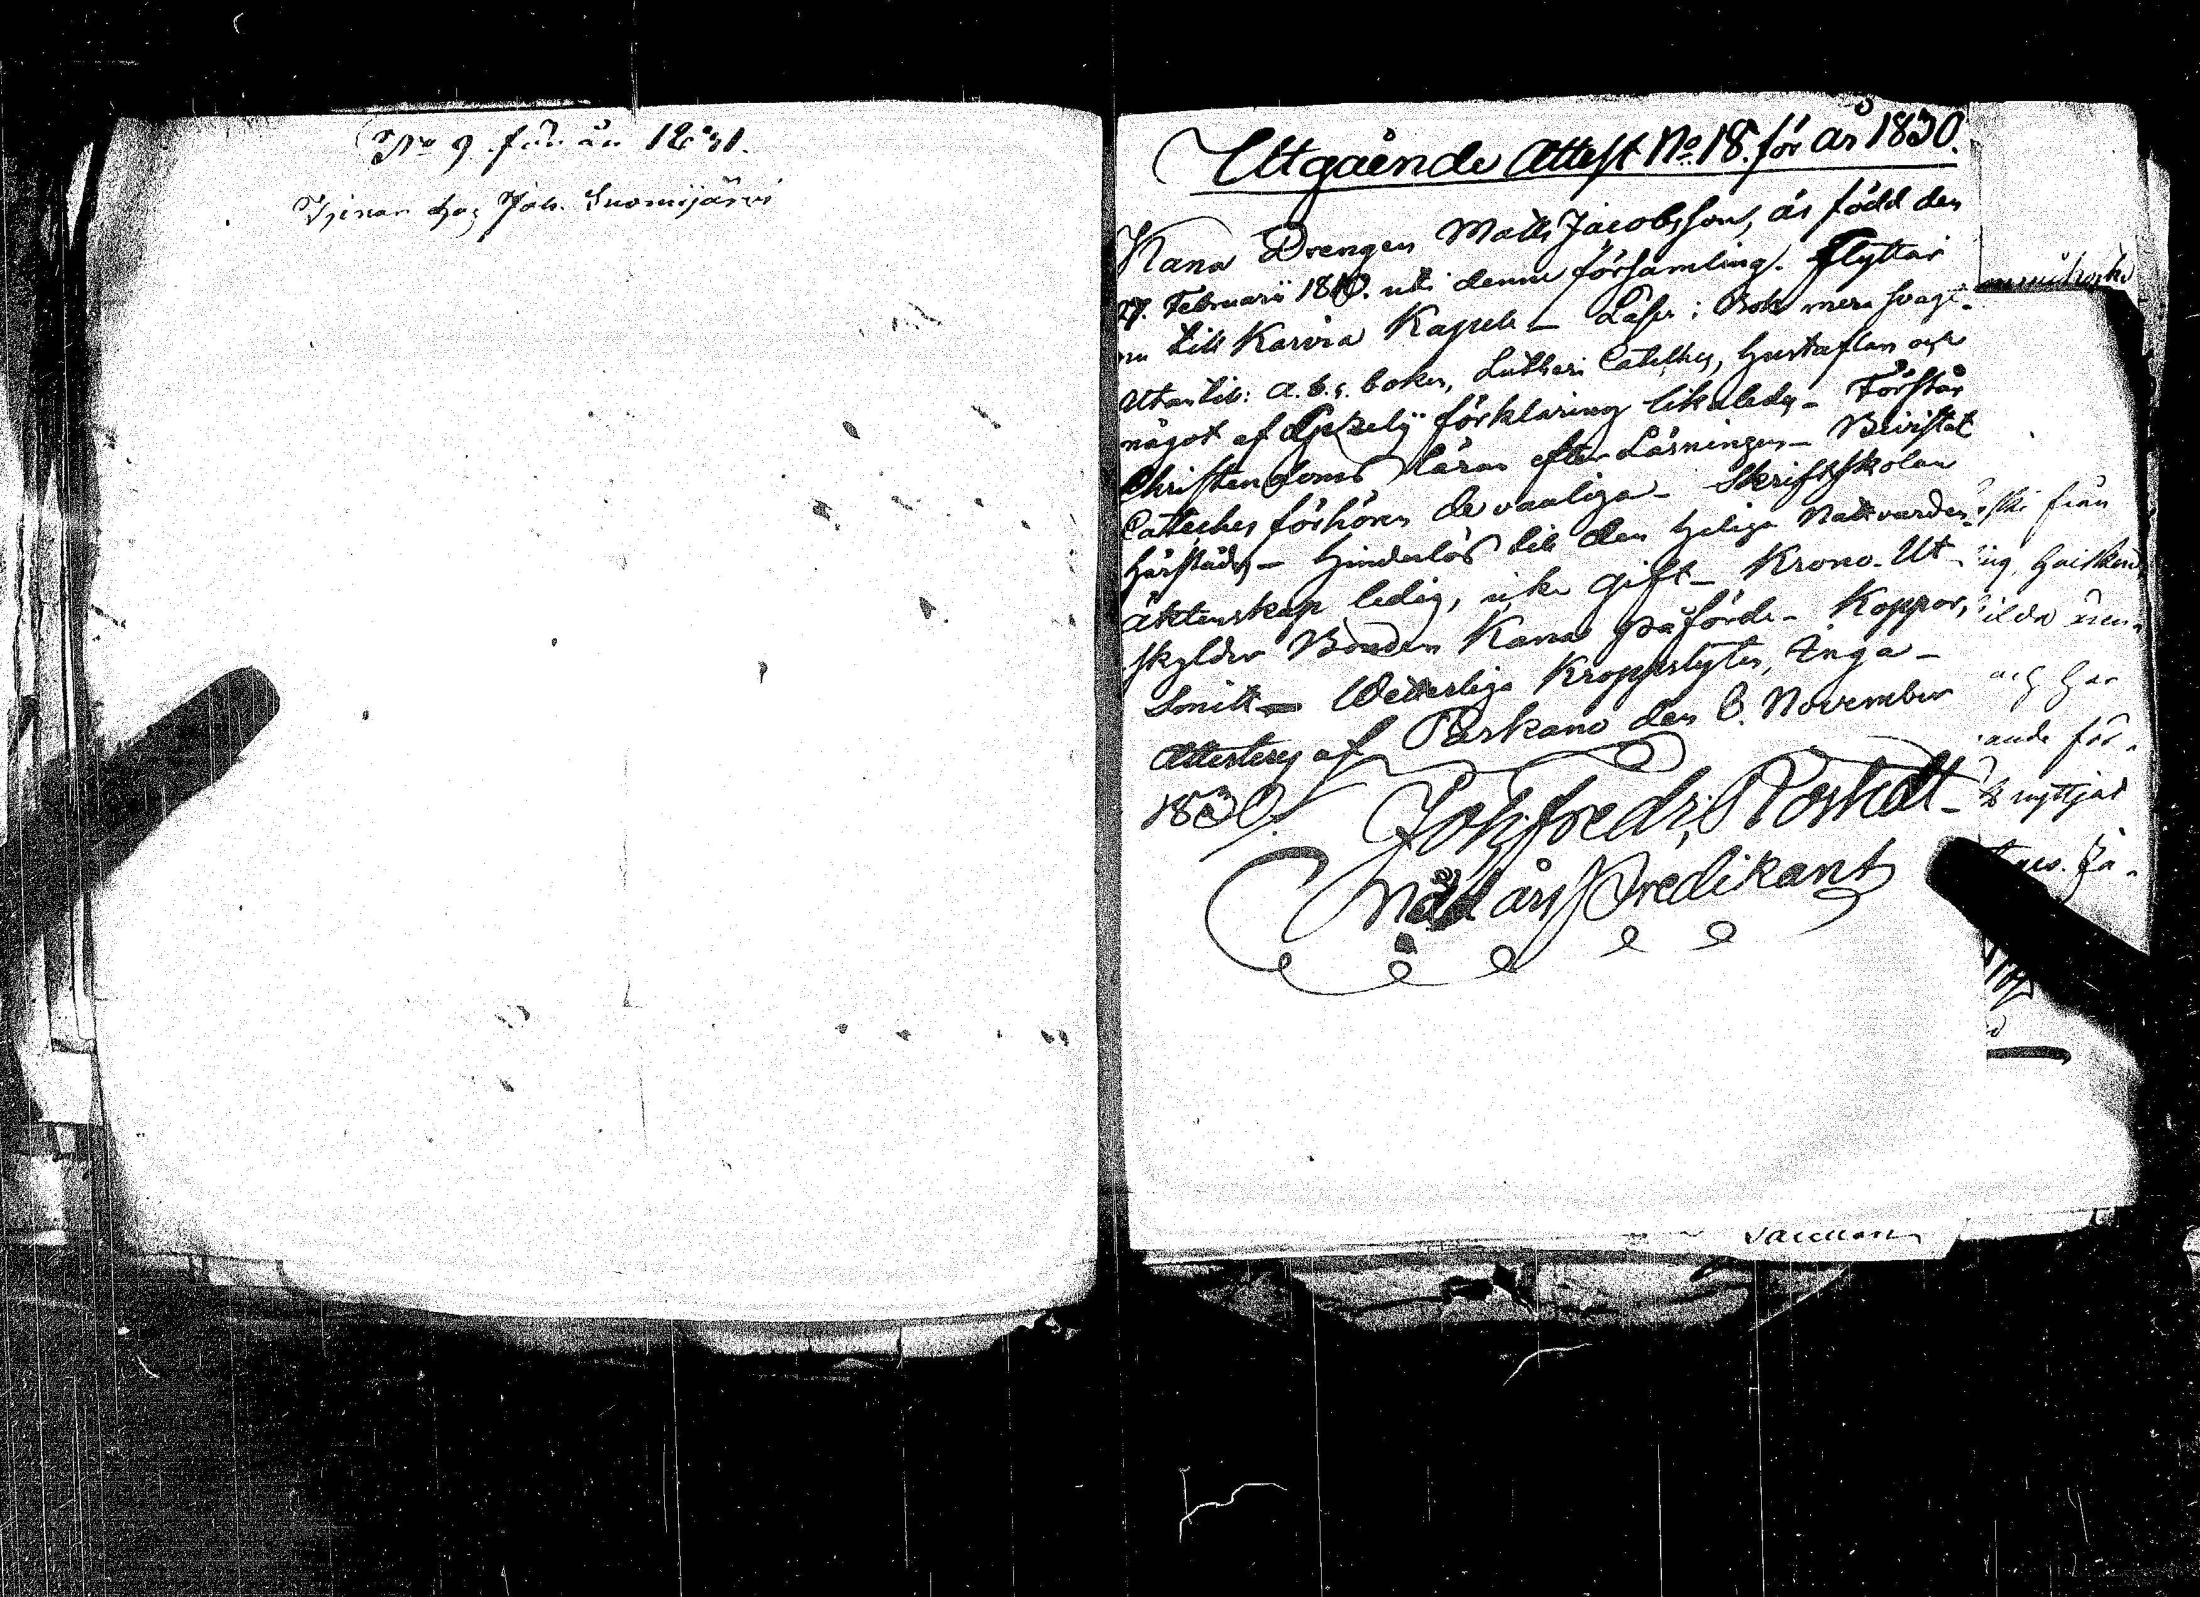 No 9 för år 1831.
Tjenar hos Joh. Suomijärvi
Utgående Attest No 18. för år 1830.
Kana Drengen Matts Jacobsson, är född den
27. Februarii 1810. uti denna församling. Flyttar
nu till Karvia Kapell – Läser i Bok mera svagt.
Utantill: A.b.c. boken, Lutheri Cateches, Hustaflan och
något af Gezelii förklaring likaledes – Förstår
Christendoms läran efter Läsningen – Bevistat
Catteches förhören de vanliga – Skriftskolan
härstädes – Hinderlös till den Heliga Nattvarden
Äktenskap ledig, icke gift – Krono-Ut-
skylder Bonden Kana påförde – Koppor,
Smitt – Wetterliga Kroppslyten, Inga –
Attesteras af Parkano den 6. November
1830.
Joh. Fredr. Roskelt –
Nådårs Predikant
från
och har
ande för-
nyttjat